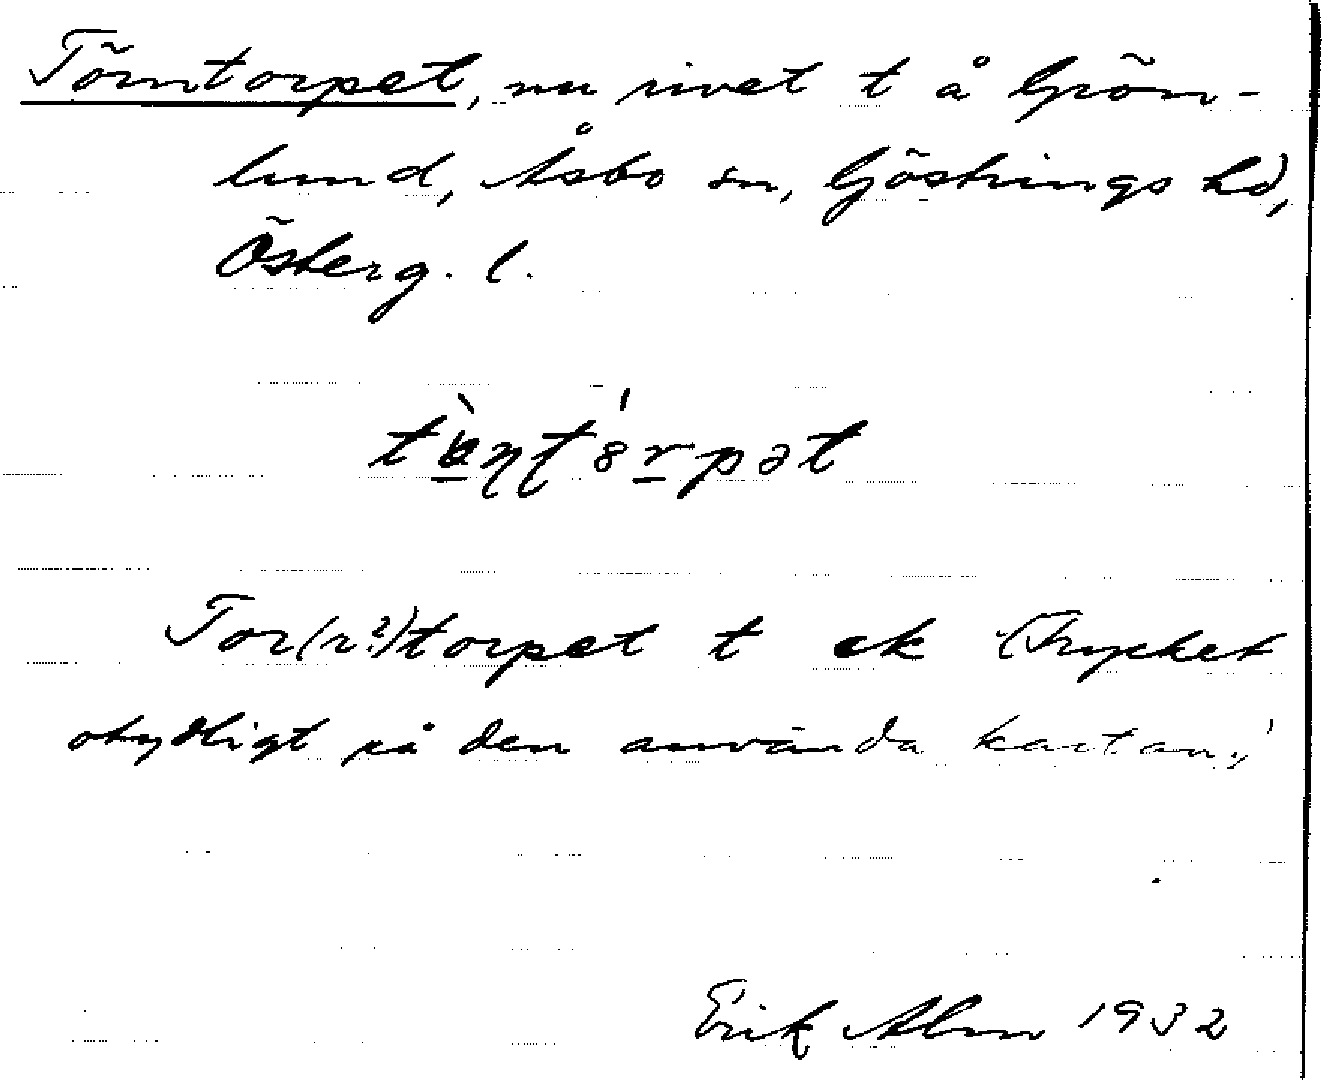 Törntorpet, nu rivet t å Grön-
lund, Åsbo sn, Göstrings hd,
Österg. l.
Tor(n?)torpet t ek (Trycket
otydligt på den använda kartan,
Erik Alm 1932